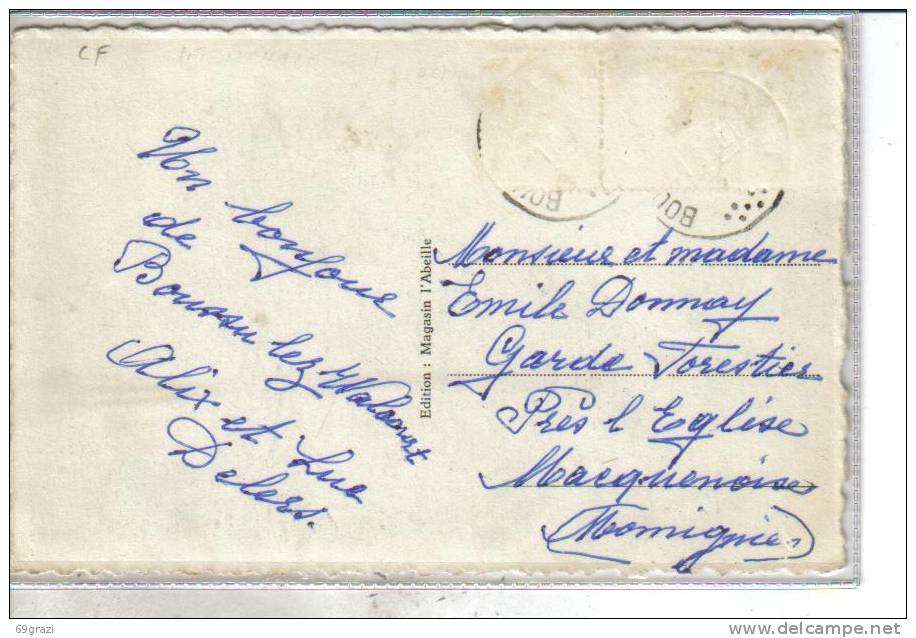 CF
Un bonjour
de
Boussu lez Walcourt
Alix et Luc
Delers.
Edition : Magasin l'Abeille
BOU
BOU
Monsieur et madame
Emile Donnay
Garde Forestier
Près l Eglise
Macquenoise
(Momignie)
69grazi
delcampe.net